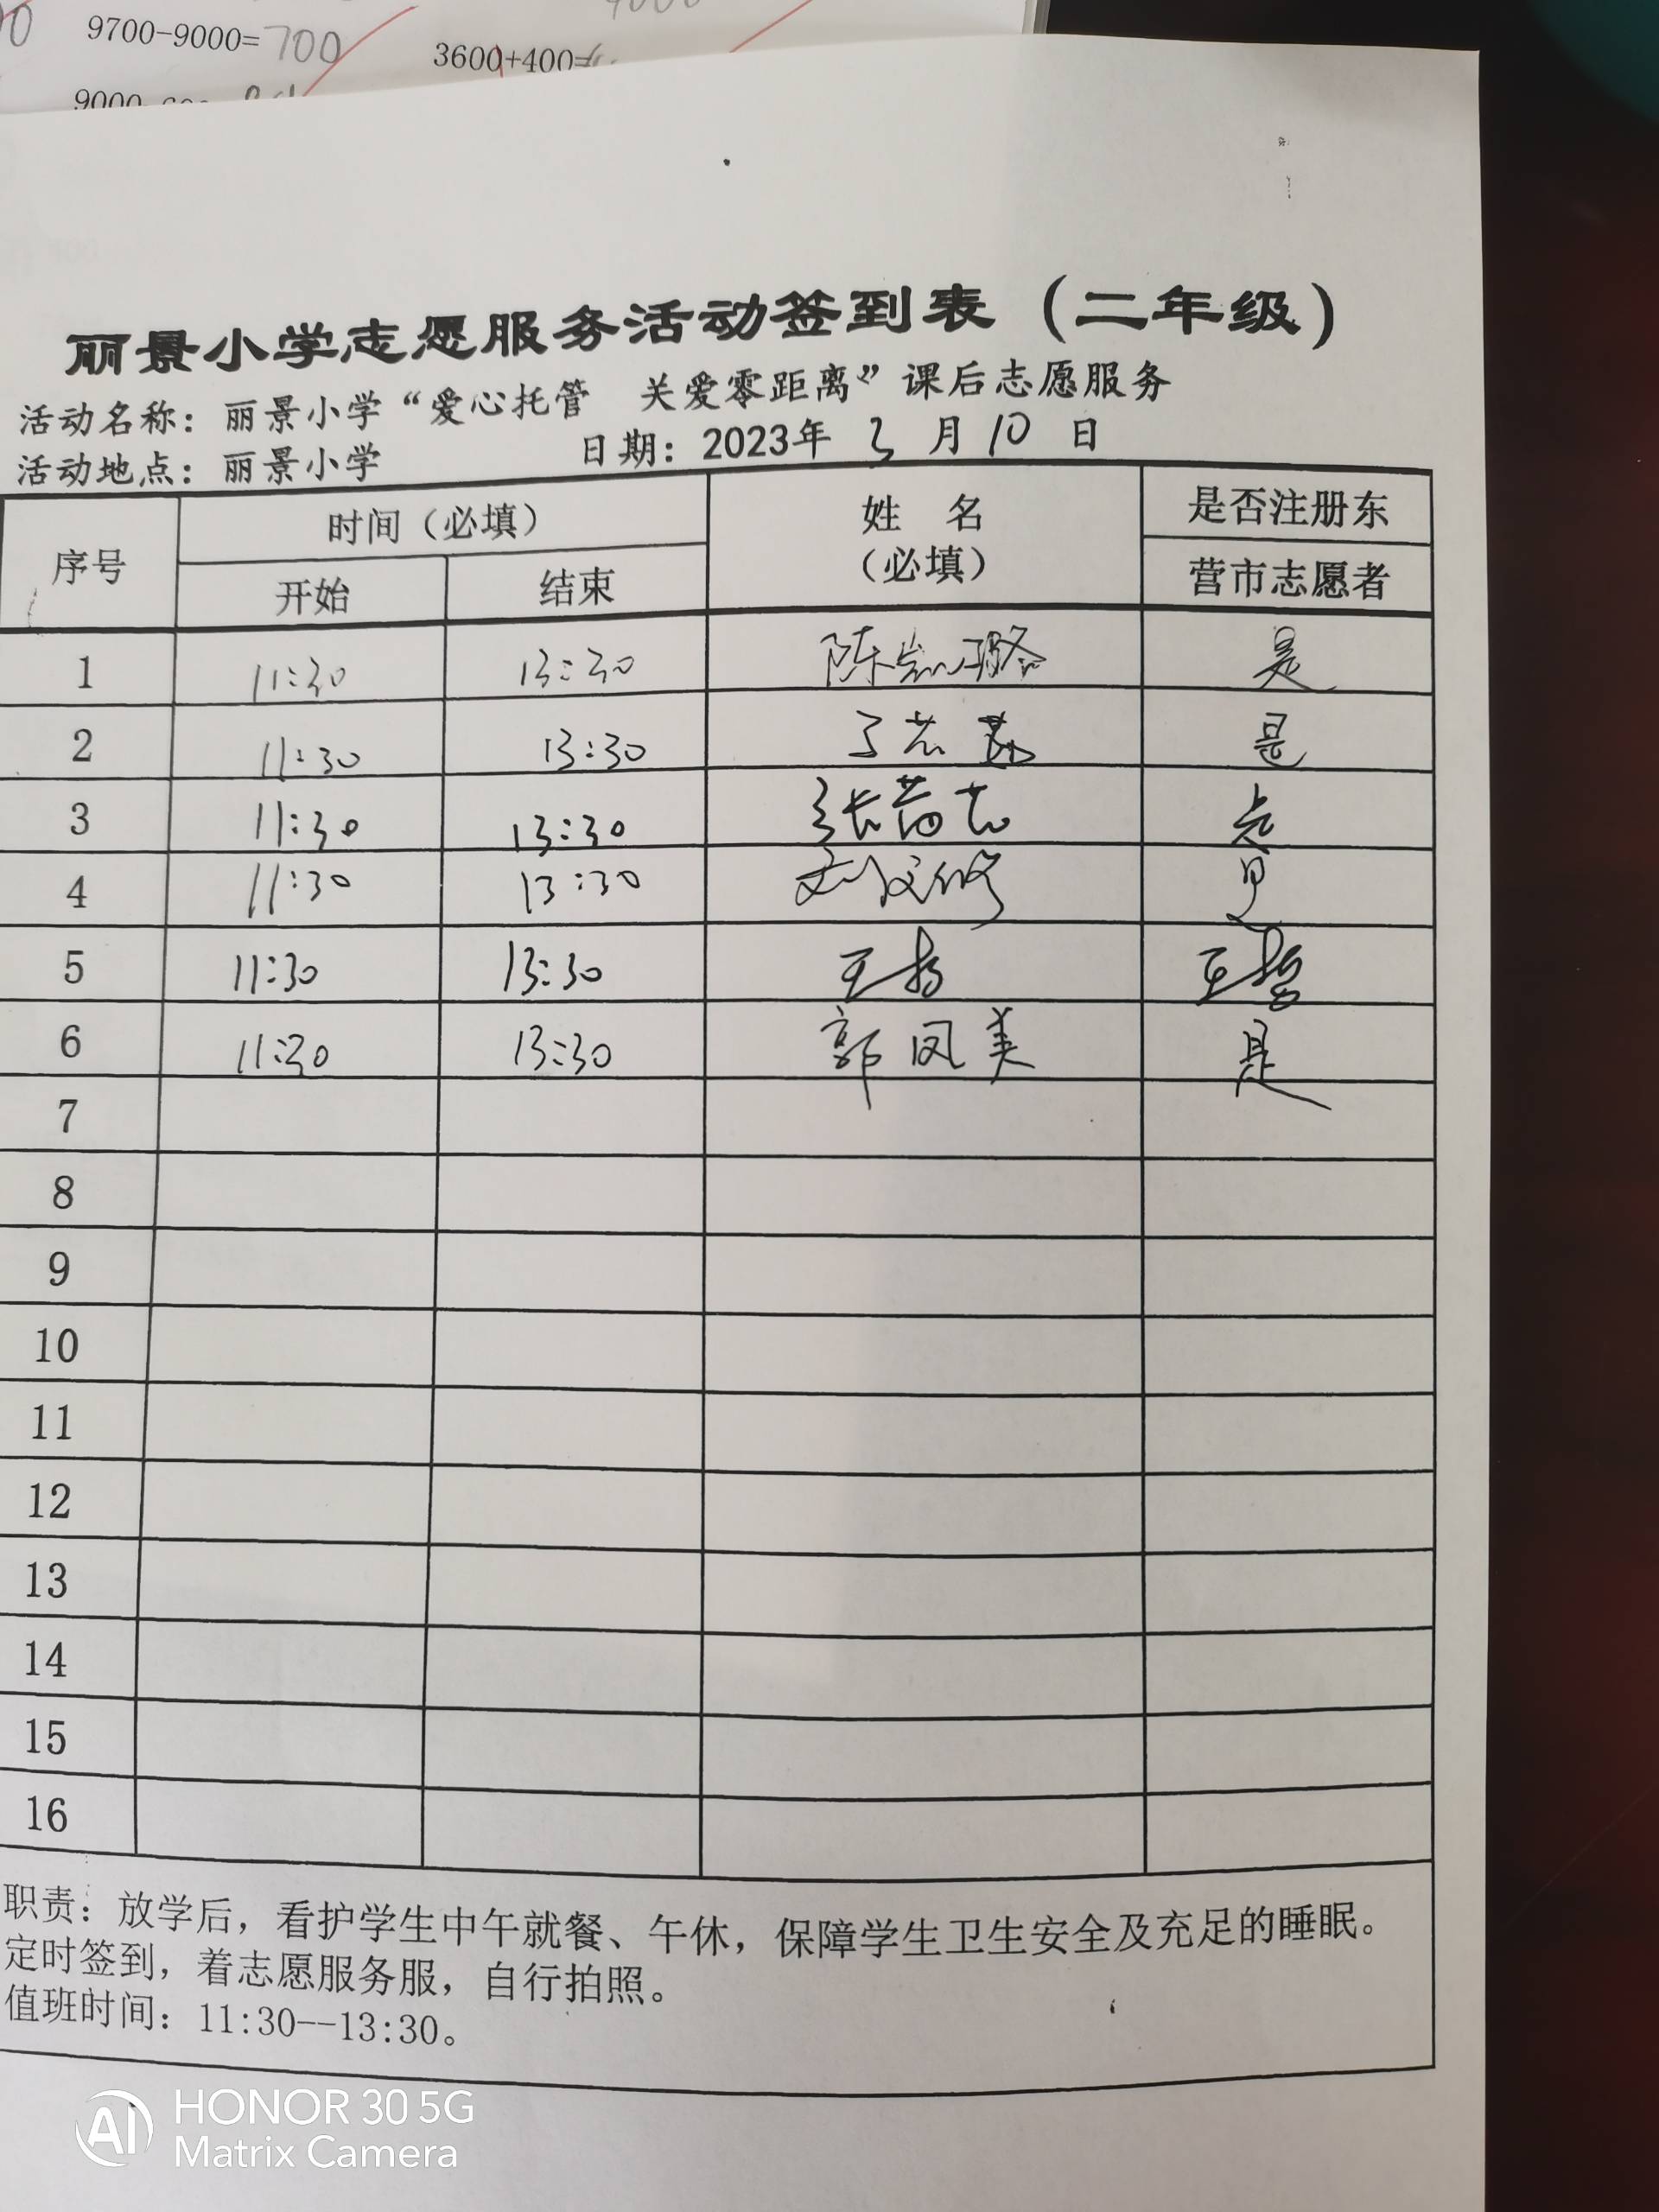 9700-9000=700
3600+400=
丽景小学志愿服务活动签到表（二年级）
活动名称：丽景小学“爱心托管 关爱零距离”课后志愿服务
活动地点：丽景小学 日期：2023年 3 月 10 日
序号 时间（必填） 姓 名（必填） 是否注册东营市志愿者
开始 结束
1 11:30 13:30 陈 是
2 11:30 13:30 是
3 11:30 13:30 张 是
4 11:30 13:30 刘文修 是
5 11:30 13:30 王 王
6 11:30 13:30 郭凤美 是
7
8
9
10
11
12
13
14
15
16
职责：放学后，看护学生中午就餐、午休，保障学生卫生安全及充足的睡眠。
定时签到，着志愿服务服，自行拍照。
值班时间：11:30--13:30。
AI HONOR 30 5G
Matrix Camera